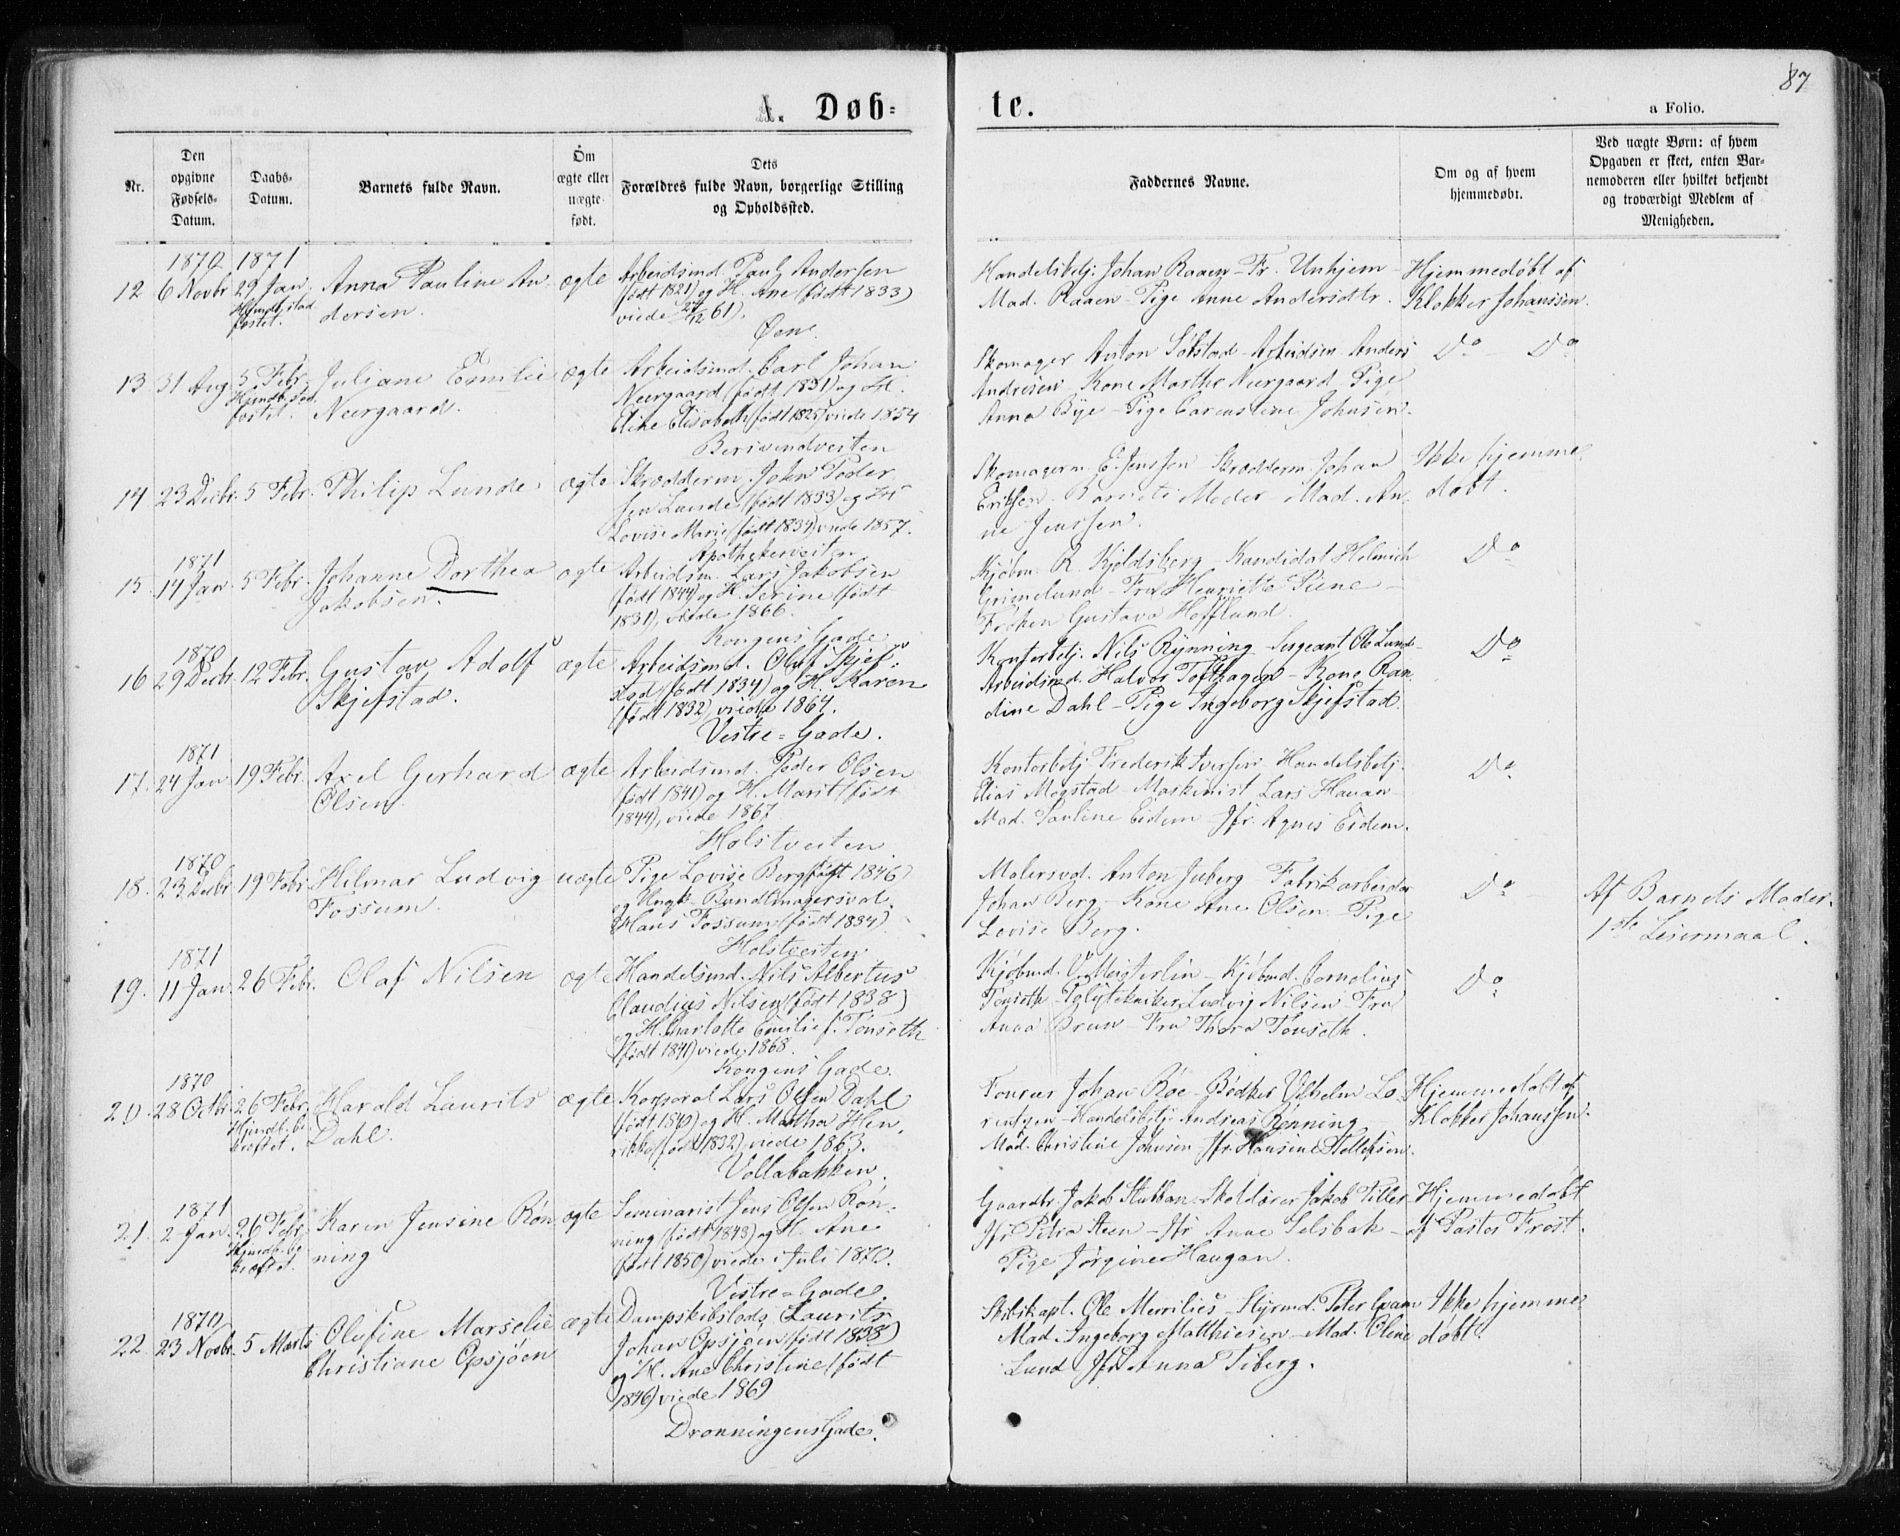 87
A. Døb=
te.
a Folio.
Nr.
Den opgivne Fødsels-Datum.
Daabs-Datum.
Barnets fulde Navn.
Om ægte eller uægte født.
Dets Forældres fulde Navn, borgerlige Stilling og Opholdssted.
Faddernes Navne.
Om og af hvem hjemmedøbt.
Ved uægte Børn: af hvem Opgaven er skeet, enten Barnemoderen eller hvilket bekjendt og troværdigt Medlem af Menigheden.
1870 1871
12 6 Novbr 29 Jan Anna Pauline An- ægte Arbeidsmd Paul Andersen
dersen. (født 1821) og H. Ane (født 1833)
viede 61).
Øen.
Handelsbetj: Johan Raaen - Fr. Unhjem - Hjemmedøbt af
Mad. Raaen - Pige Anne Andersdtr. Klokker Johanssen.
13 31 Aug 5 Febr. Juliane Emilie ægte Arbeidsmd. Carl Johan
Neergaard. Neergaard (født 1831) og H.
Eline Elisabeth (født 1825) viede 1854
Skomager Anton Solstad - Arbeidsm Anders Do - Do
Andresen - Kone Marthe Neergaard - Pige
Anna Bye - Pige Carenstine Johnsen.
14 23 Decbr. 5 Febr. Philip Lunde ægte Skrædderm. John Peder
sen Lunde (født 1833) og H.
Lovise Marie (født 1834) viede 1857.
Apothekerveiten
Skomagerm. E. Jenssen Skrædderm Johan Ikke hjemme-
Eriksen - Barnets Moder Mad. An- døbt.
ne Jenssen.
1871
15 14 Jan. 5 Febr. Johanne Dorthea ægte Arbeidsm. Lars Jakobsen
Jakobsen. (født 1844) og H. Serine (født
1831), viede 1866.
Kongens Gade
Kjøbm. R. Kjeldsberg - Kandidat Helmich Do
Grimelund - Fru Henriette Piene -
Frøken Gustava Hofflund.
1870
16 29 Decbr. 12 Febr. Gustav Adolf ægte Arbeidsmd. Oluf Skjef-
Skjefstad. stad (født 1834) og H. Karen
(født 1832) viede 1864.
Vestre=Gade.
Kontorbetj. Nils Rynning - Sergeant Ole Lund - Do
Arbeidsmd. Halvor Tofthagen - Kone Ran-
dine Dahl - Pige Ingeborg Skjefstad.
1871
17. 24 Jan 19 Febr. Axel Gerhard ægte Arbeidsmd. Peder Olsen
Olsen. (født 1841) og H. Marit (født
1844), viede 1867
Holstveiten
Kontorbetj Frederik Iversen. Handelsbetj. Do
Elias Megstad - Maskinist Lars Hanan -
Mad. Pauline Eidem - Jfr. Agnes Eidem.
1870
18. 23 Decbr 19 Febr. Hilmar Ludvig uægte Pige Lovise Berg (født 1846)
Fossum. og Ungk. Bundtmagersvd.
Hans Fossum (født 1834)
Holstveiten
Malersvd. Anton Juberg Fabrikarbeider Do
Johan Berg - Kone Ane Olsen - Pige
Lovise Berg.
Af Barnets Moder.
1ste Leiermaal.
1871
19. 11 Jan. 26 Febr. Olaf Nilsen ægte Handelsmd. Nils Albertus
Claudius Nilsen (født 1838)
og H. Charlotte Emilie f. Tonseth
(født 1841) viede 1868.
Kongens Gade.
Kjøbmd. Kjøbmd. Cornelius Do
Tonseth - Polytekniker Ludvig Nilsen Fru
Anna Bruun - Fru Thora Tonseth.
1870
20. 28 Octbr. 26 Febr. Harald Laurits ægte Korporal Lars Olsen Dahl
Dahl. (født 1840) og H. Martha Hen-
rikke (født 1832) viede 1863.
Vollabakken.
Fourer Johan Roe - Bødker Vilhelm Lo- Hjemmedøbt af
rentzen - Handelsbetj. Andreas Rønning - Klokker Johanssen.
Mad. Christine Johnsen Jfr Hansine Stellefsen.
1871
21. 2 Jan. 26 Febr. Karen Jensine Røn- ægte Seminarist Jens Olsen Røn-
ning ning (født 1848) og H. Ane
(født 1850) viede i Juli 1870.
Vestre=Gade.
Gaardbr. Jakob Stubban - Skolelærer Jakob Tiller Hjemmedøbt
Jfr Petra Steen - Jfr Anne Selsbak - af Pastor Frost.
Pige Jørgine Haugan.
1870
22. 23 Novbr. 5 Marts Olufine Marselie ægte Dampskibslods Laurits
Christiane Opsjøen Johan Opsjøen (født 1838)
og H. Ane Christine (født
1846) viede 1869
Dronningens Gade.
Skibskapt. Ole Merrilies - Styrmd. Peter Ikke hjemme-
Mad. Ingeborg Matthiesen - Mad. Oline døbt.
Lund Jfr Anna Tiberg.